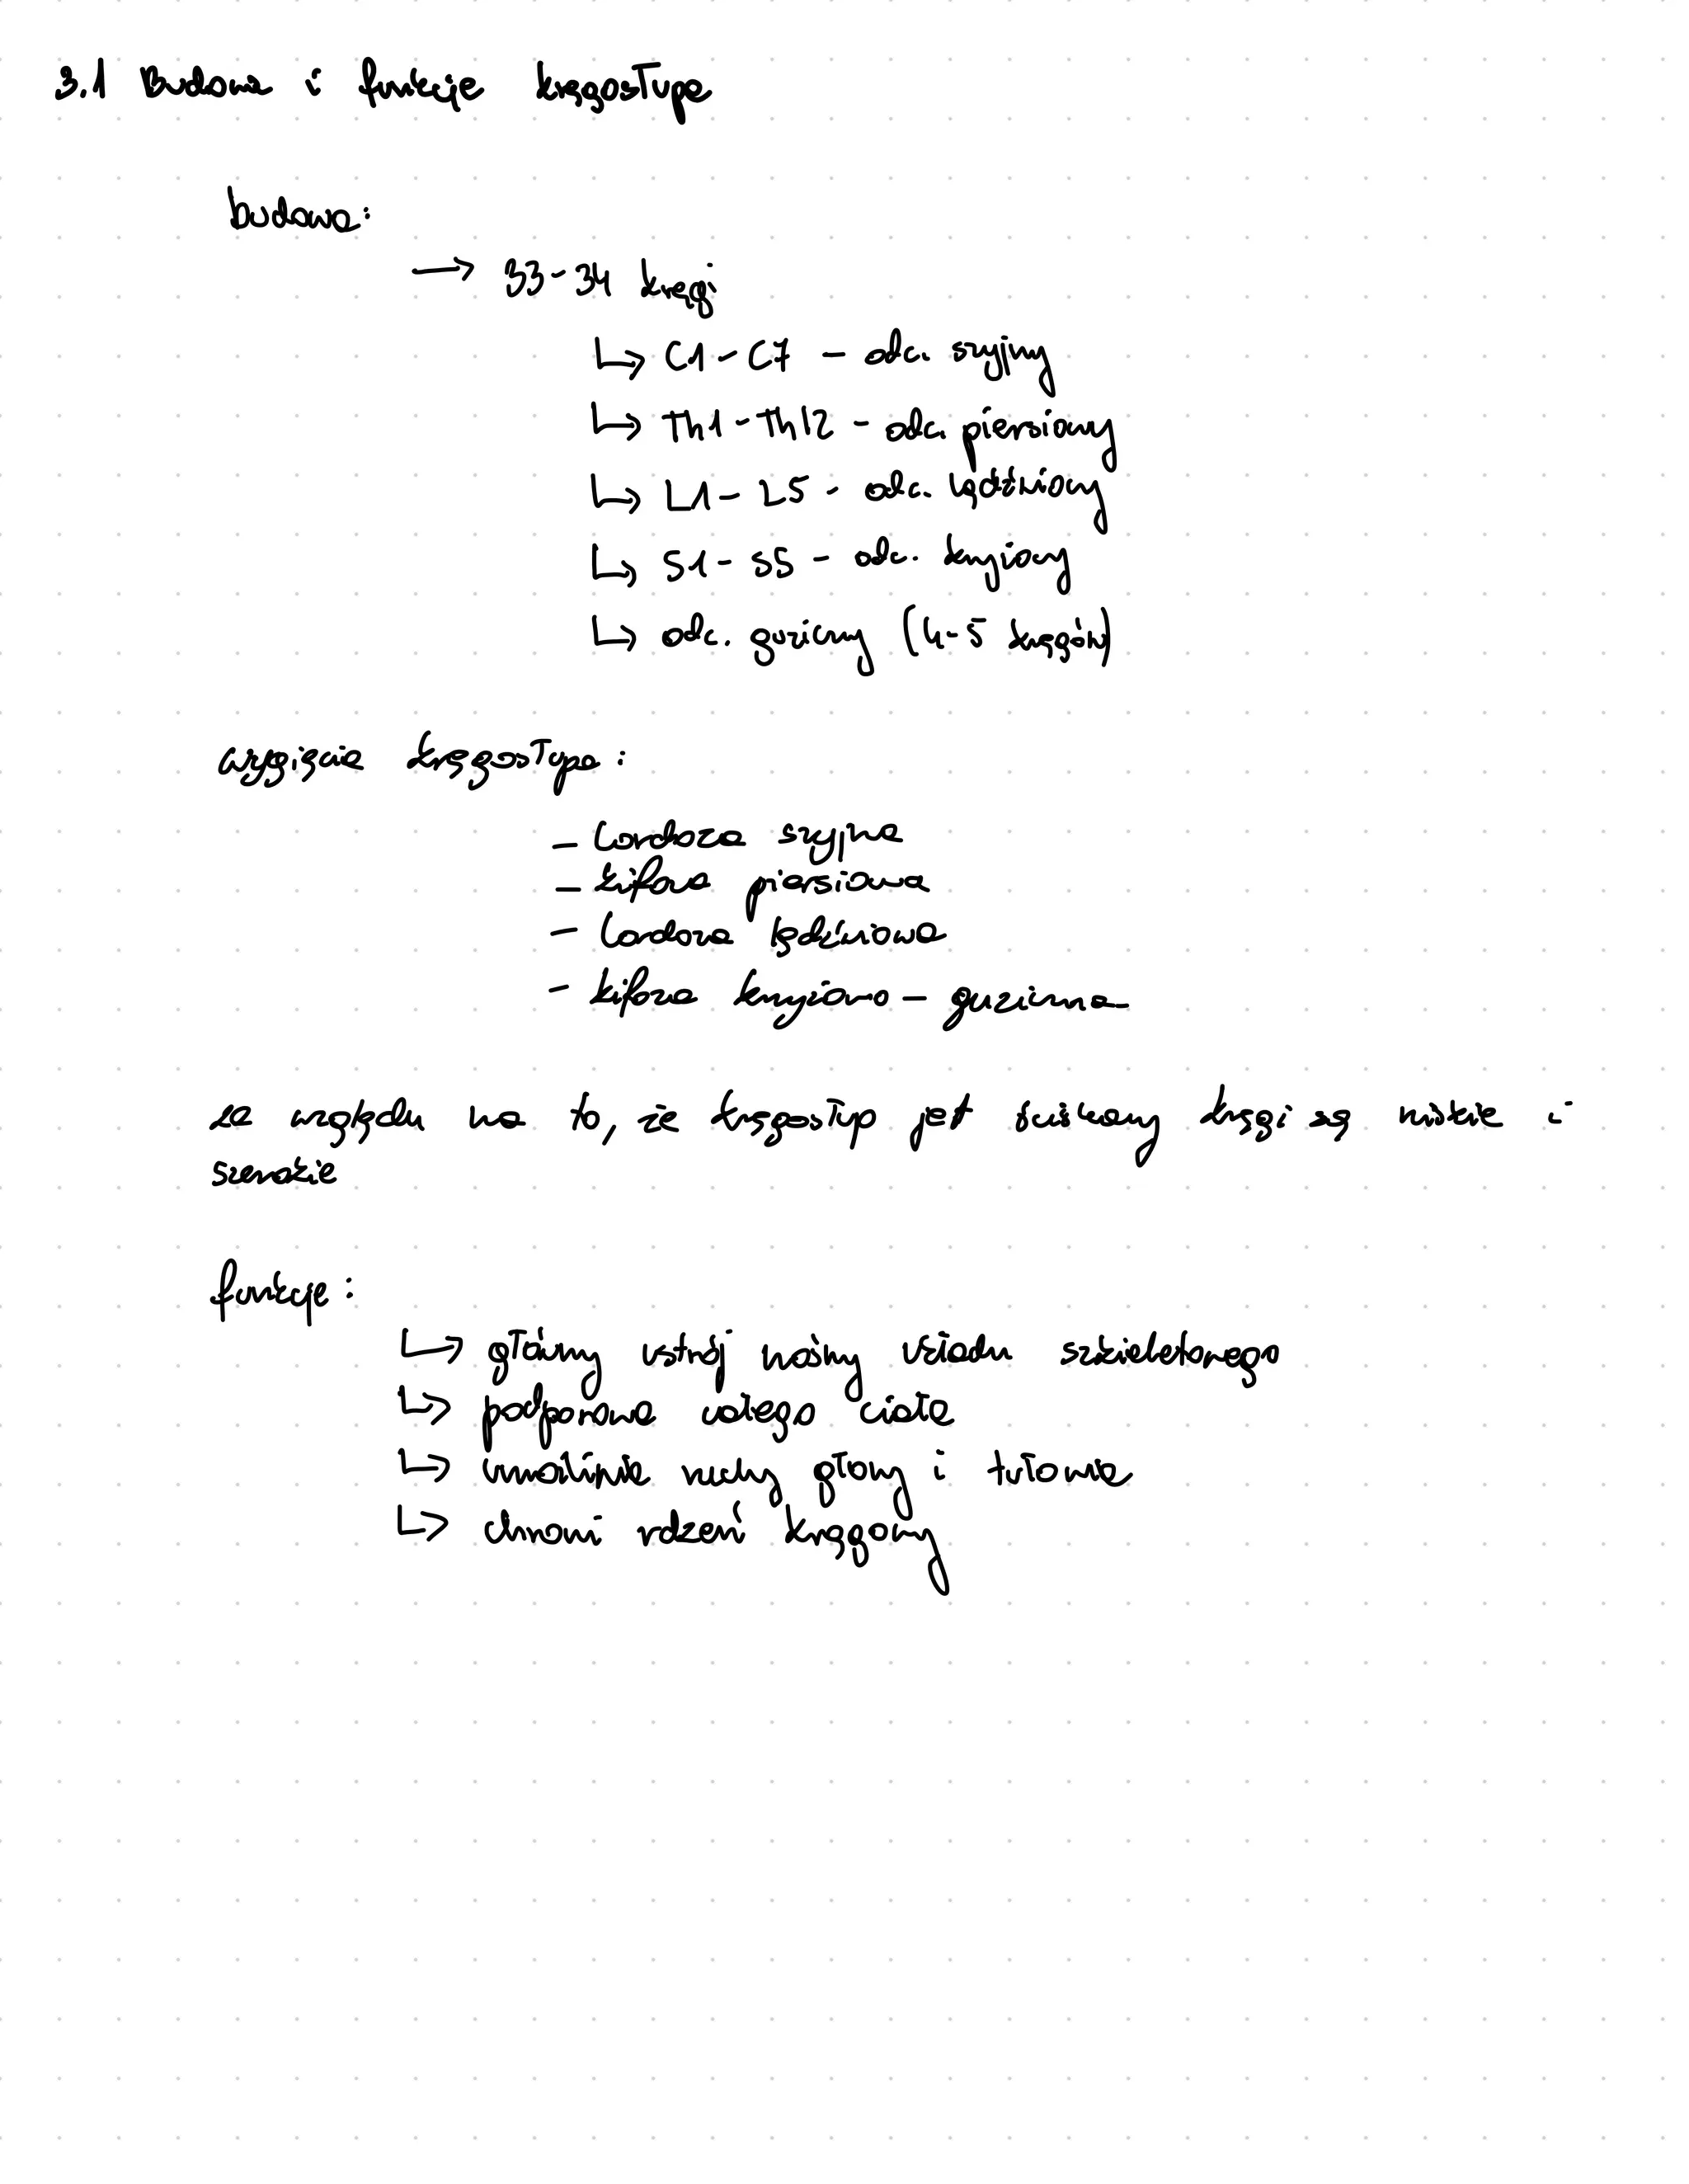 3.1 Budowa i funkcje kręgosłupa
budowa:
→ 33-34 kręgi
↳ C1-C7 - odc. szyjny
↳ Th1-Th12 - odc. piersiowy
↳ L1-L5 - odc. lędźwiowy
↳ S1-S5 - odc. krzyżowy
↳ odc. guziczny (4-5 kręgów)
wygięcie kręgosłupa:
- lordoza szyjna
- kifoza piersiowa
- lordoza lędźwiowa
- kifoza krzyżowo-guziczna
ze względu na to, że kręgosłup jest ściskany kręgi są niskie i
szerokie
funkcje:
↳ główny ustrój nośny układu szkieletowego
↳ podporowa całego ciała
↳ umożliwia ruchy głowy i tułowia
↳ chroni rdzeń kręgowy